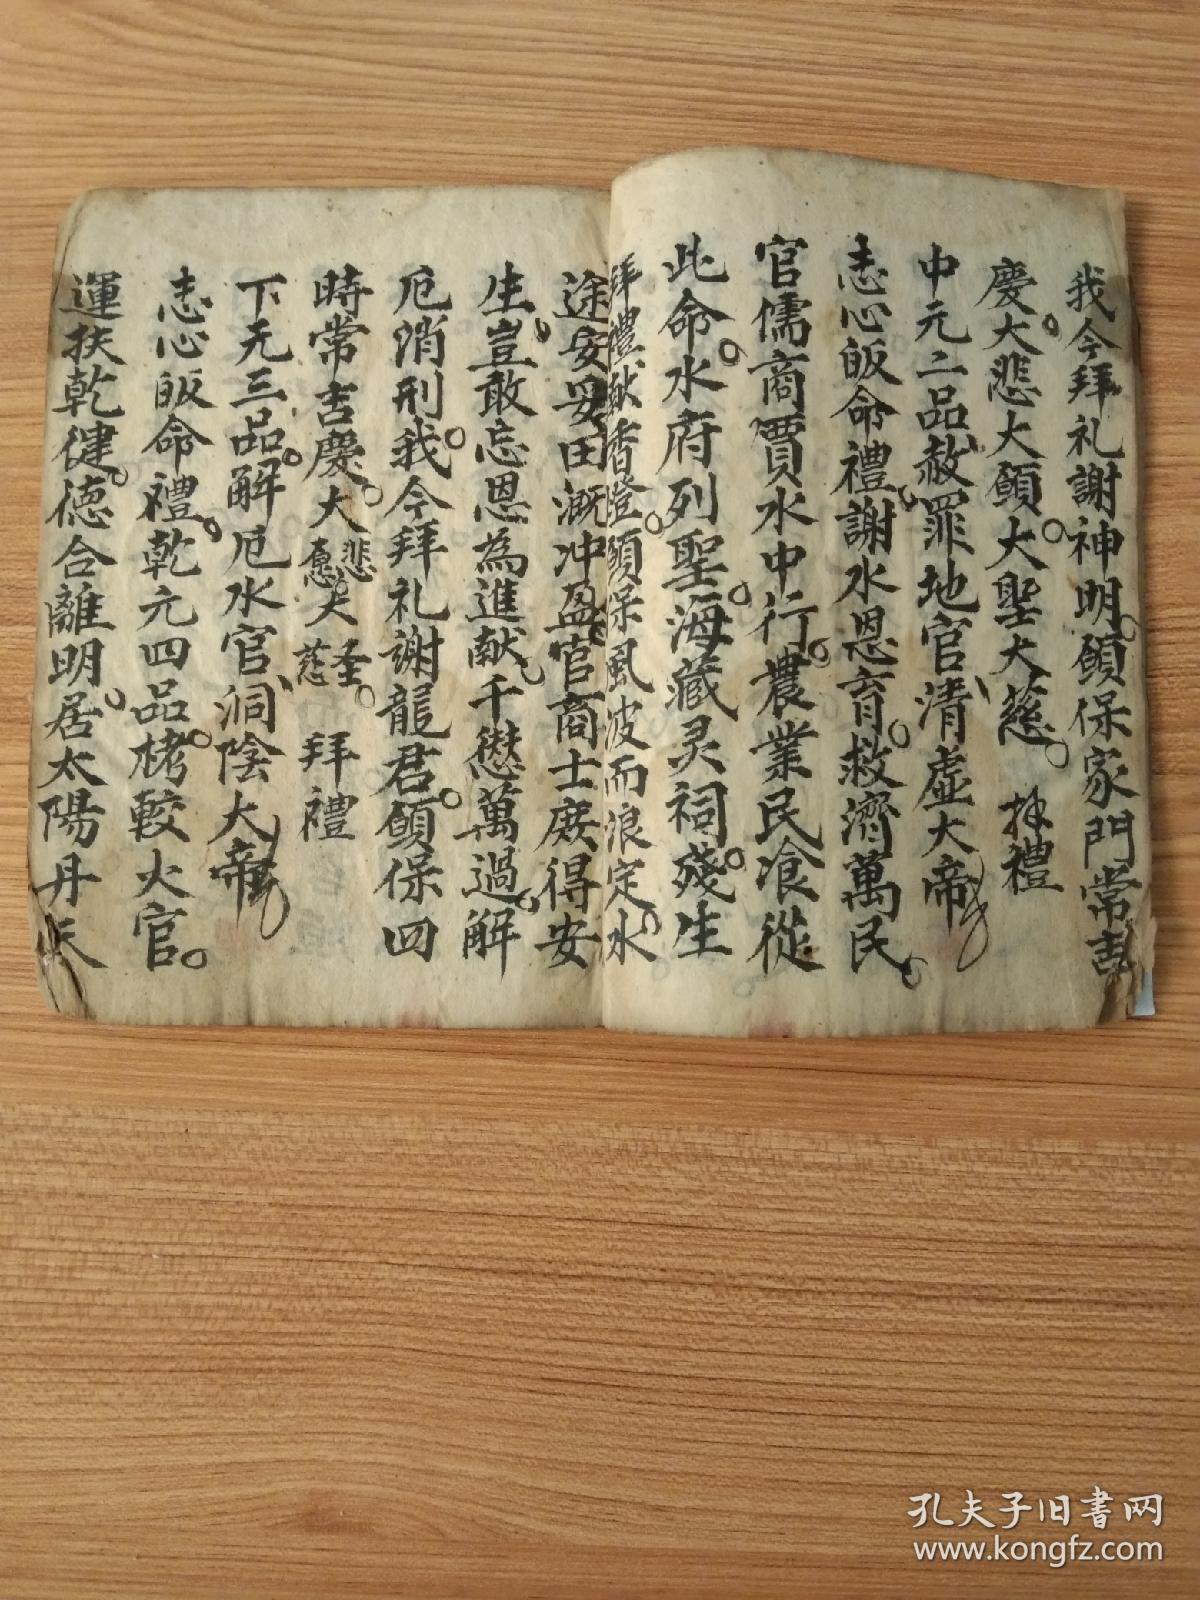 我今拜礼謝神明願保家門常吉
慶大悲大願大聖大慈 拜禮
中元二品赦罪地官清虛大帝
志心皈命禮謝水恩育救濟萬民
官儒商賈水中行農業民飡從
此命水府列聖海藏灵祠殘生
拜禮献香燈願保風波而浪定水
途安妥田溉冲盈官商士庶得安
生豈敢忘恩為進献千愆萬過解
厄消刑我今拜礼謝龍君願保四
時常吉慶大悲大愿大圣大慈 拜禮
下元三品解厄水官洞陰大帝
志心皈命禮乾元四品栲較火官
運扶乾健德合離明居太陽丹天
孔夫子旧书网
www.kongfz.com